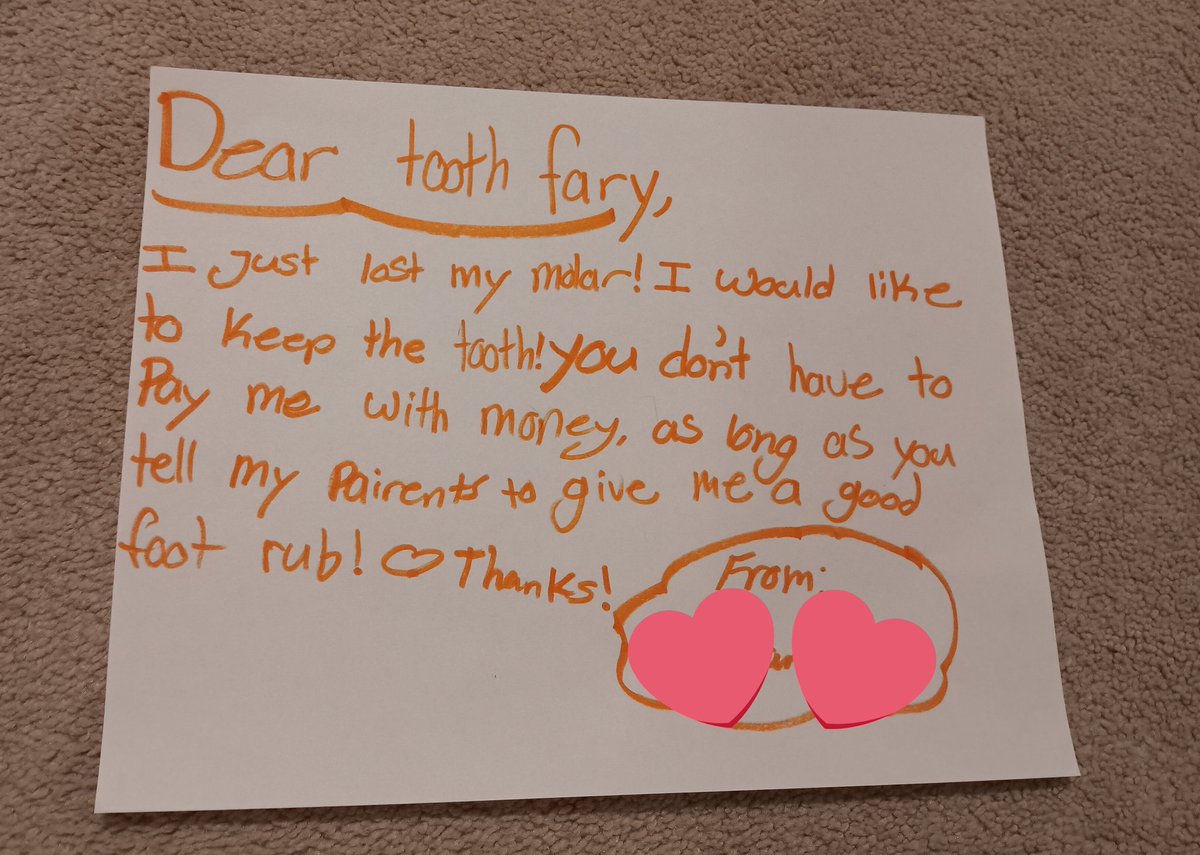 Dear tooth fary,
I just lost my molar! I would like
to keep the tooth! you don't have to
Pay me with money, as long as you
tell my Pairents to give me a good
foot rub! ♡ Thanks!
From: